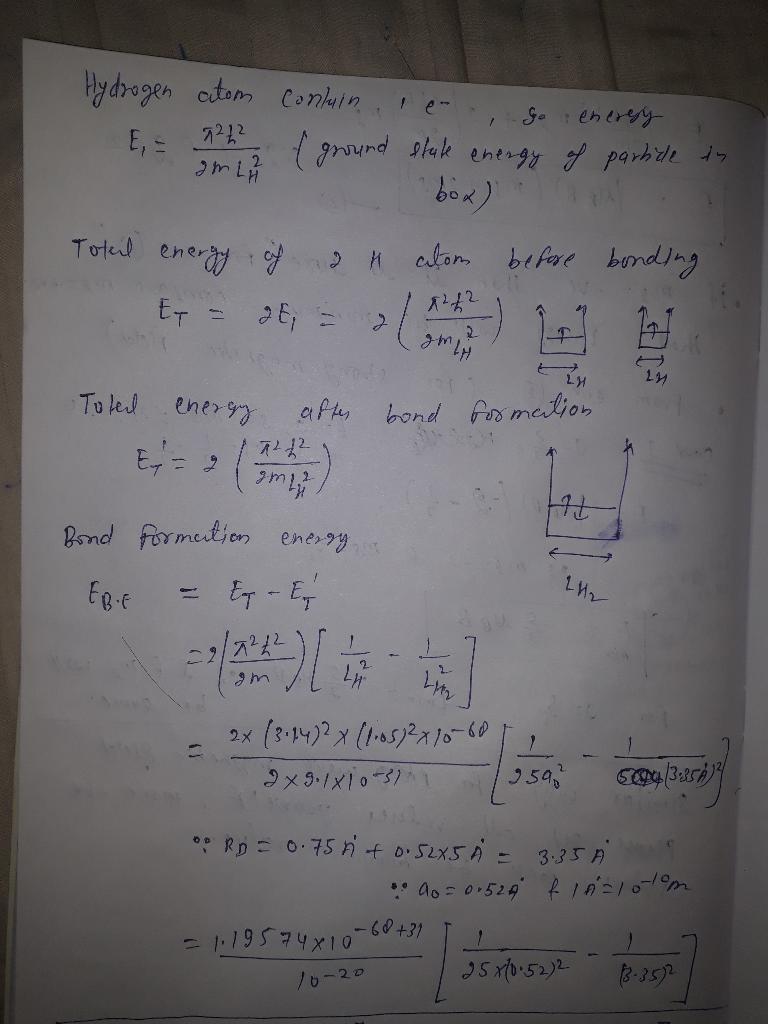 Hydrogen atom contain 1 e⁻, so energy
E₁ = π²ħ² / 2mL_H² (ground state energy of particle in
box)
Total energy of 2 H atom before bonding
E_T = 2E₁ = 2 (π²ħ² / 2mL_H²)
L_H L_H
Total energy after bond formation
E_T' = 2 (π²ħ² / 2mL_H²)
Bond formation energy
L_H₂
E_B.E = E_T - E_T'
= 2 (π²ħ² / 2m) [1 / L_H² - 1 / L_H₂²]
= 2x (3.14)² x (1.05)² x 10⁻⁶⁸ / 2 x 9.1 x 10⁻³¹ [1 / 25a₀² - 1 / (3.35Å)²]
∵ R_D = 0.75 Å + 0.52x5 Å = 3.35 Å
∵ a₀ = 0.52Å & 1Å = 10⁻¹⁰m
= 1.19574x10⁻⁶⁸⁺³¹ / 10⁻²⁰ [1 / 25x(0.52)² - 1 / (3.35)²]